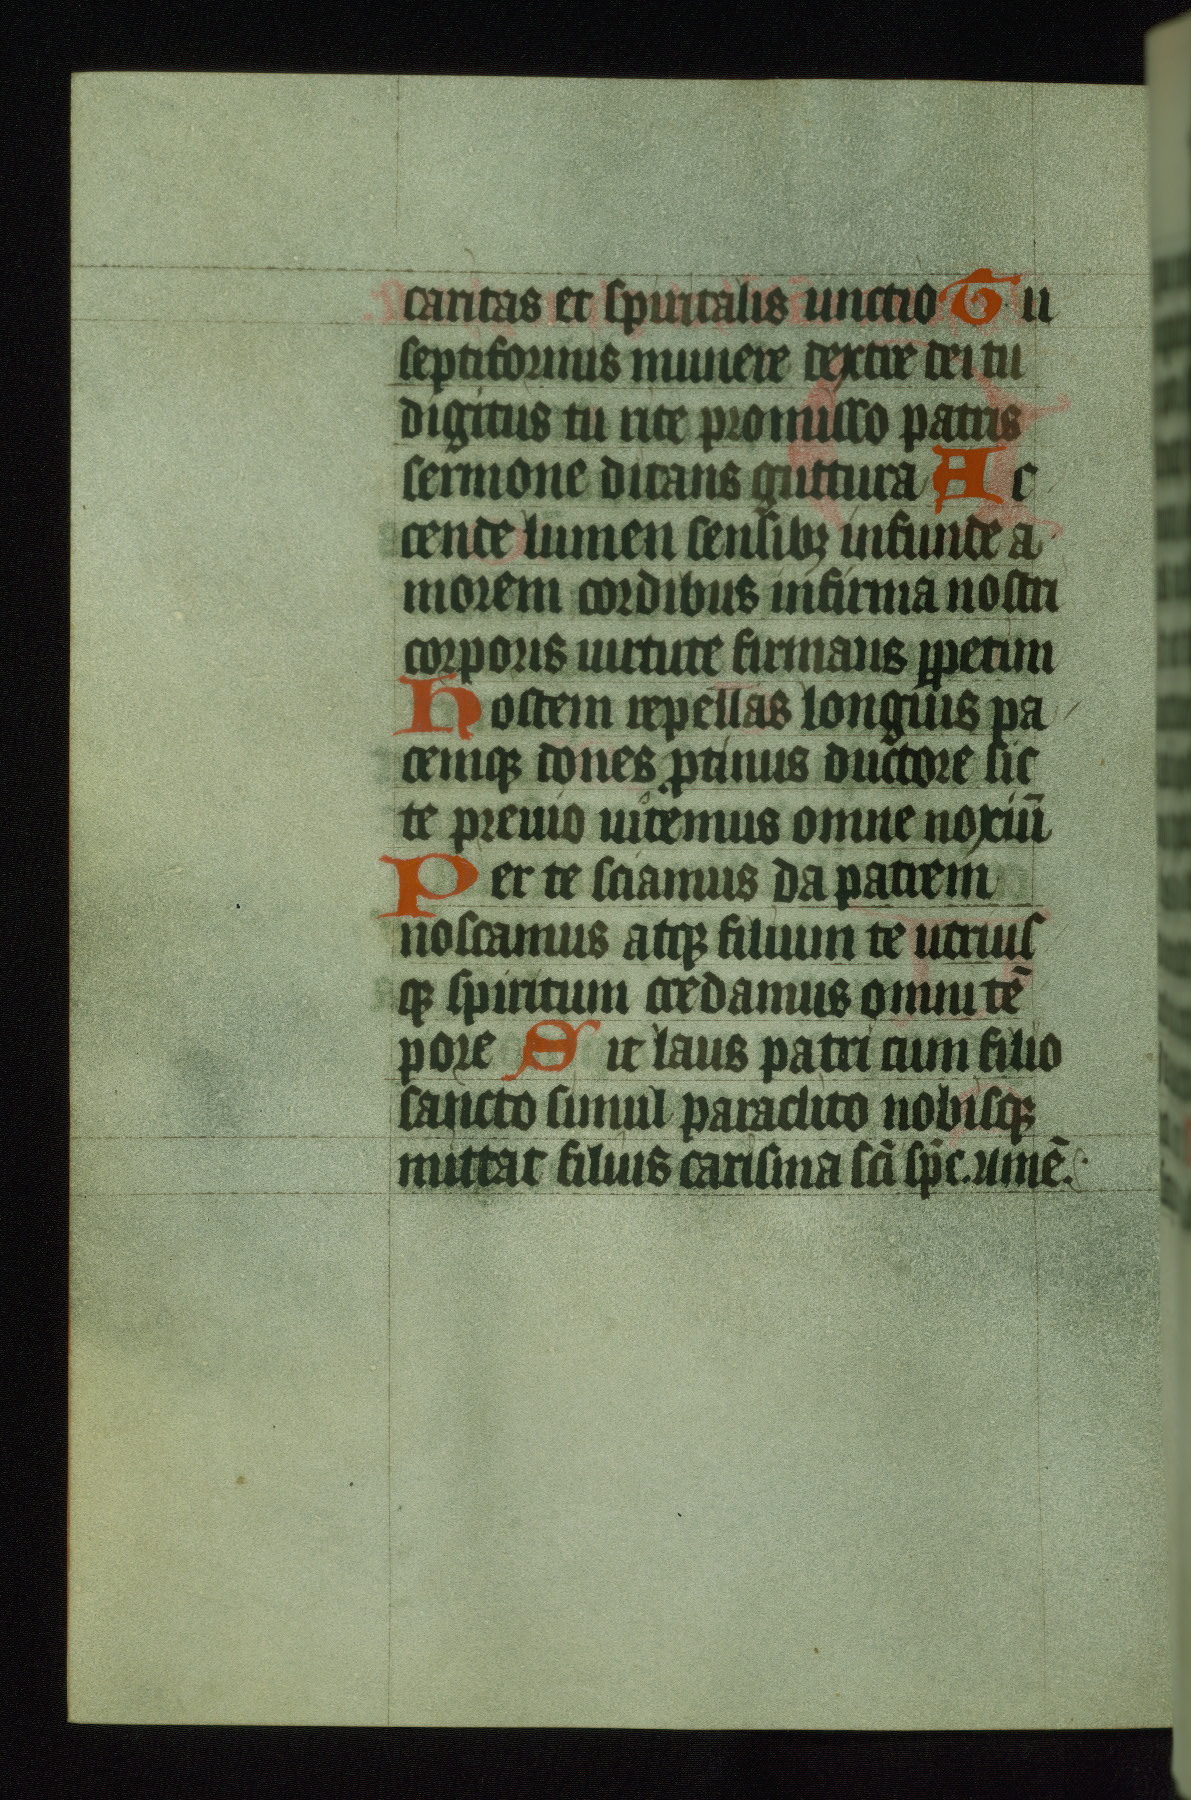 caritas et spiritalis unctio Tu
septiformis munere dextre dei tu
digitus tu rite promisso patris
sermone ditans guttura Ac
cende lumen sensibꝫ infunde a
morem cordibus infirma nostri
corporis uirtute firmans ꝑpetim
Hostem repellas longius pa
cemqꝫ dones ꝓtinus ductore sic
te preuio uitemus omne noxiū
Per te sciamus da patrem
noscamus atqꝫ filium te utrius
qꝫ spiritum credamus omni tē
pore Sit laus patri cum filio
sancto simul paraclito nobisqꝫ
mittat filius carisma sc̄i sp̄c. Amē.